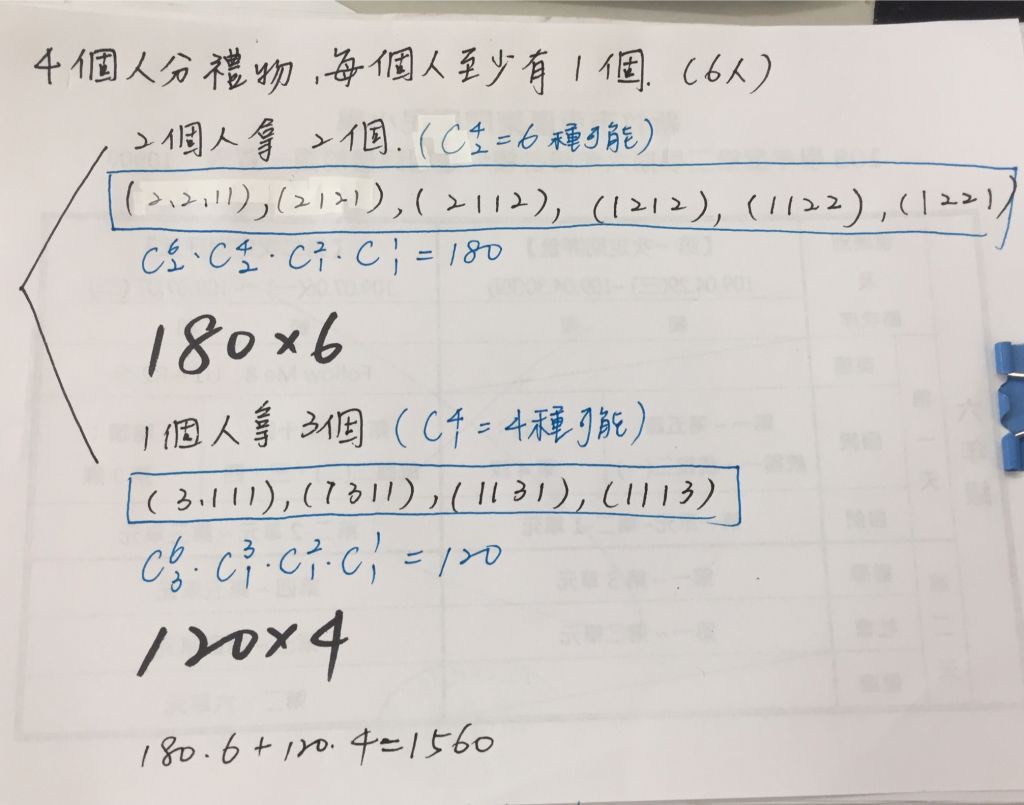 4個人分禮物,每個人至少有1個.(6人)
2個人拿 2個.(C⁴₂=6種可能)
(2,2,11),(2121),(2112),(1212),(1122),(1221)
C⁶₂·C⁴₂·C²₁·C¹₁=180
180×6
1個人拿 3個(C⁴₁=4種可能)
(3.111),(1311),(1131),(1113)
C⁶₃·C³₁·C²₁·C¹₁=120
120×4
180.6+120.4=1560